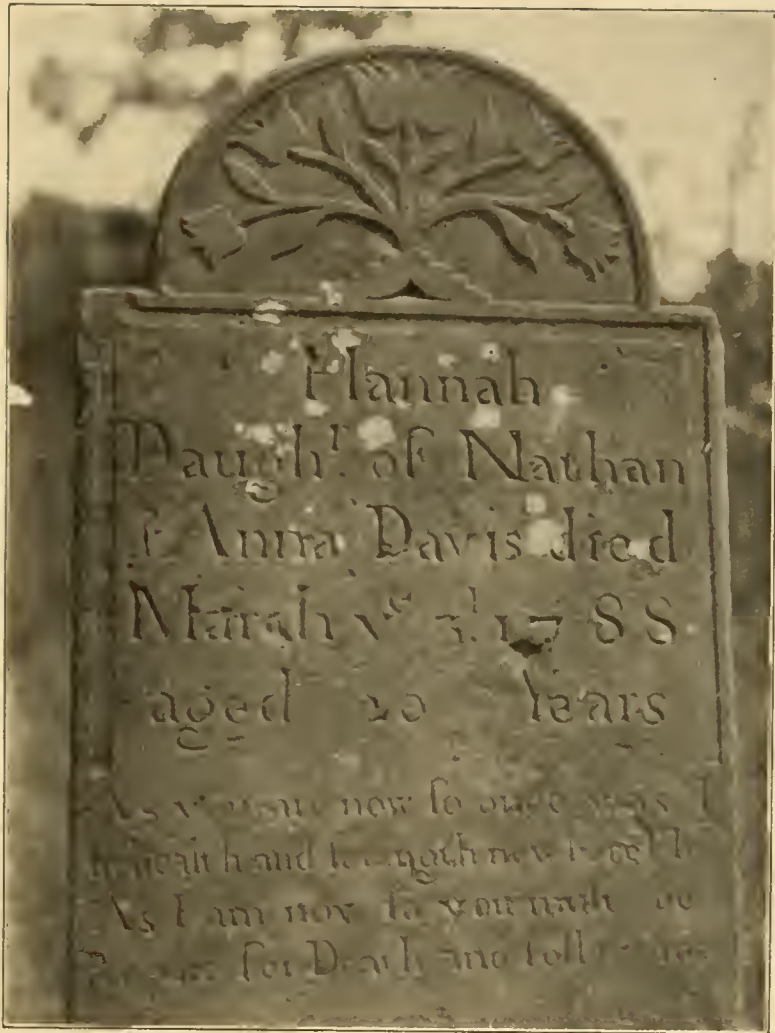 Hannah
Daughr. of Nathan
& Anna Davis died
March ye 3d 1788
aged 20 Years
As you are now so once was I
in health and strength now here I lie
As I am now so you must be
Prepare for Death and follow me